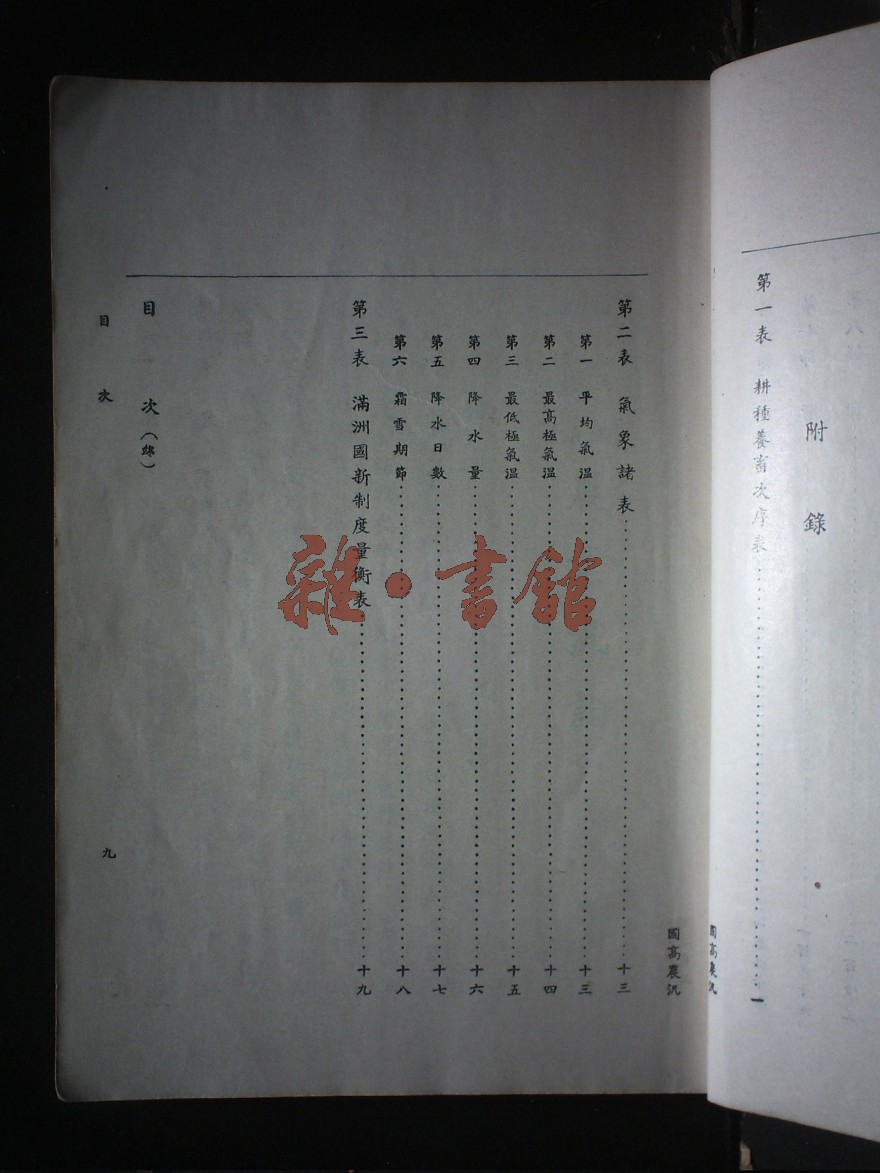 附錄
第一表 耕種養畜次序表 一
國高農汎
國高農汎
第二表 氣象諸表 十三
第一 平均氣温 十三
第二 最高極氣温 十四
第三 最低極氣温 十五
第四 降水量 十六
第五 降水日數 十七
第六 霜雪期節 十八
第三表 滿洲國新制度量衡表 十九
目次(終)
目次 九
雜·書館